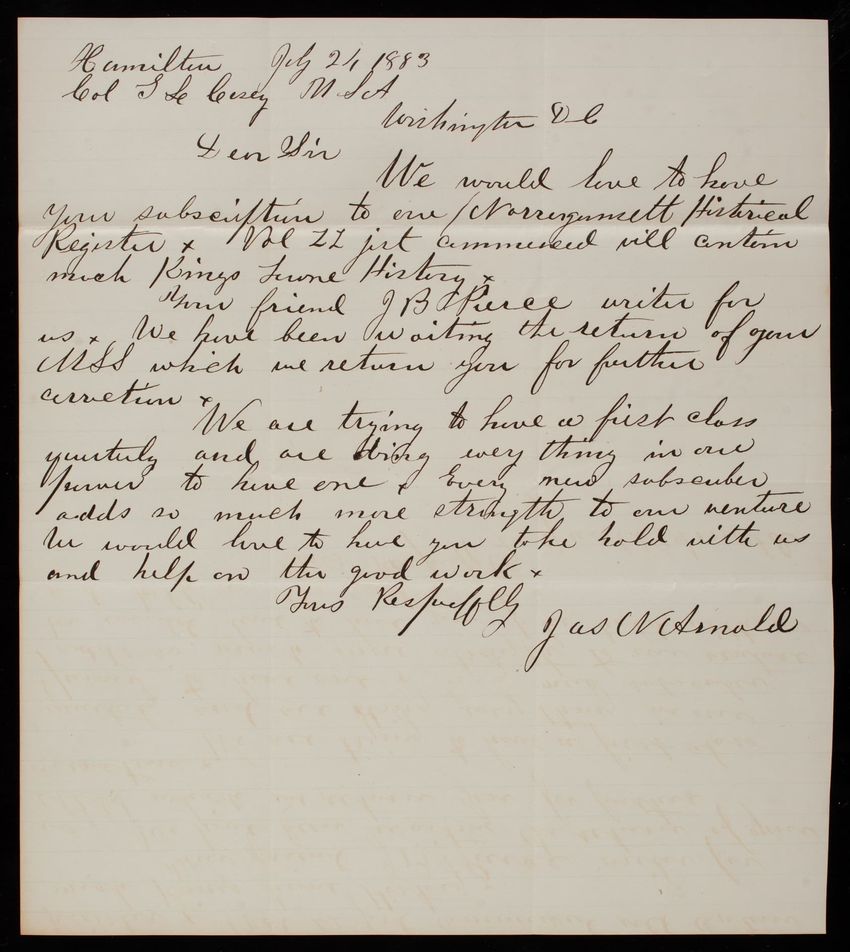 Hamilton July 24 1883
Col T L Casey U S A
Washington D C
Dear Sir
We would love to have
your subscription to our Narragansett Historical
Register x Vol II just commenced will contain
much Kings Towne History x
Your friend J B Pierce writes for
us x We have been waiting the return of your
MSS which we return you for further
correction x
We are trying to have a first class
quarterly and are doing every thing in our
power to have one x Every new subscriber
adds so much more strength to our venture
We would love to have you take hold with us
and help on the good work x
Yours Respectfully
Jas N Arnold